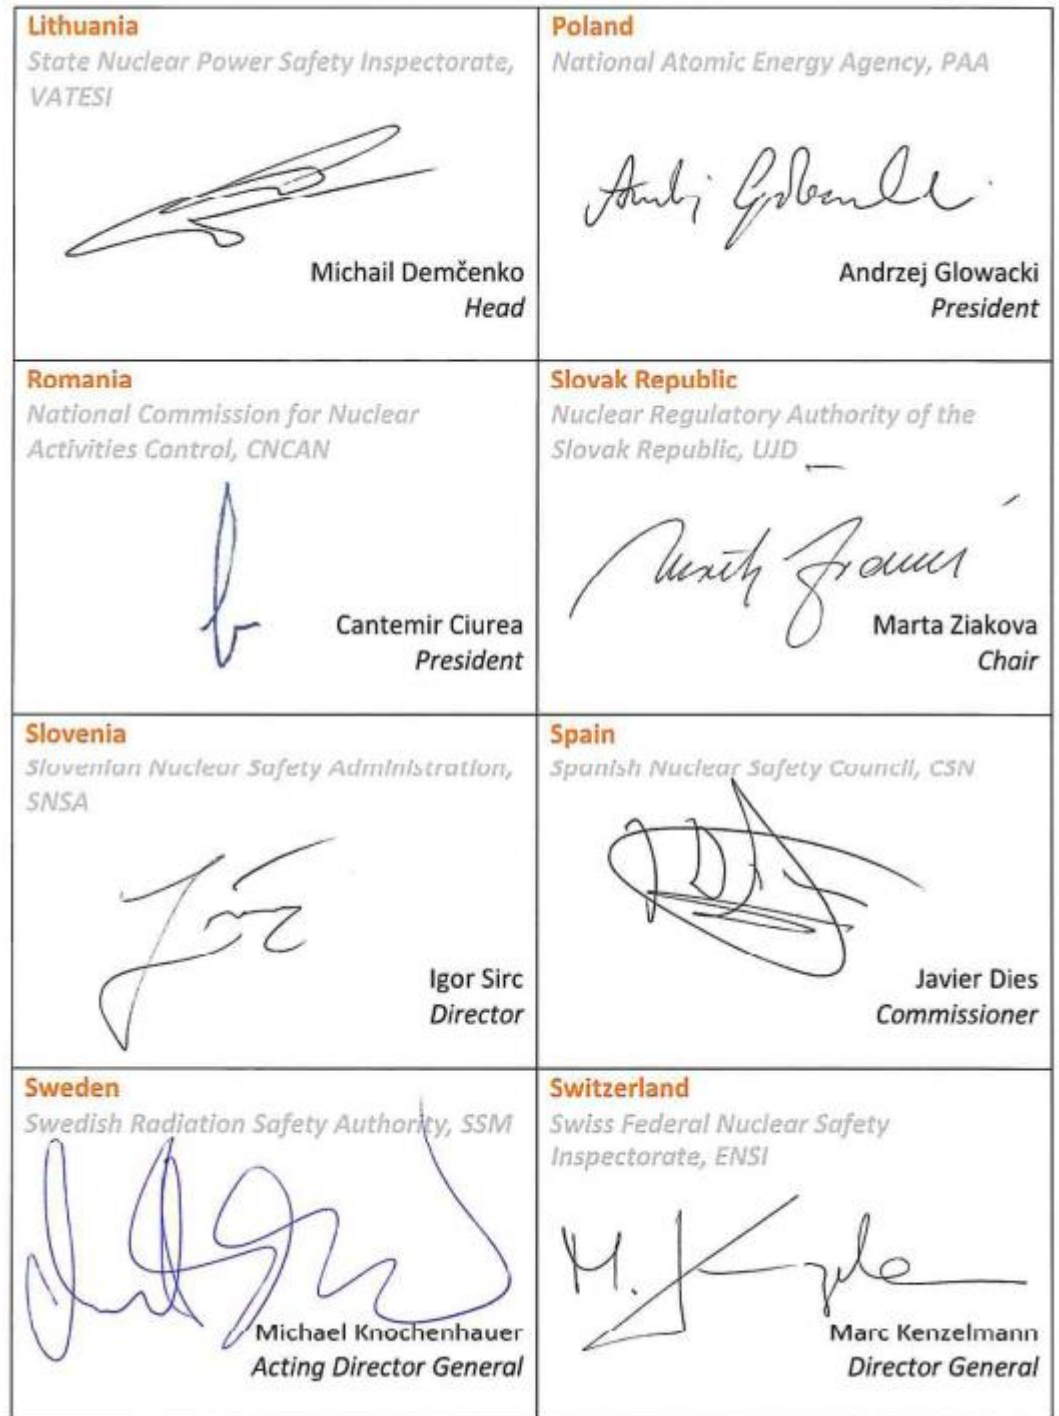 Lithuania
State Nuclear Power Safety Inspectorate,
VATESI
Michail Demčenko
Head
Poland
National Atomic Energy Agency, PAA
Andrzej Glowacki
President
Romania
National Commission for Nuclear
Activities Control, CNCAN
Cantemir Ciurea
President
Slovak Republic
Nuclear Regulatory Authority of the
Slovak Republic, UJD
Marta Ziakova
Chair
Slovenia
Slovenian Nuclear Safety Administration,
SNSA
Igor Sirc
Director
Spain
Spanish Nuclear Safety Council, CSN
Javier Dies
Commissioner
Sweden
Swedish Radiation Safety Authority, SSM
Michael Knochenhauer
Acting Director General
Switzerland
Swiss Federal Nuclear Safety
Inspectorate, ENSI
Marc Kenzelmann
Director General